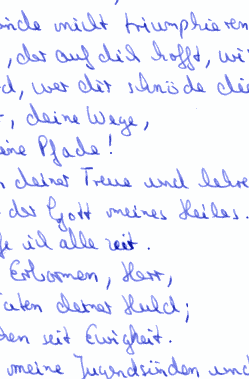 nde nicht triumphieren
, der auf dich hofft, wi
d, wer dir schnöde di
, deine Wege,
ine Pfade!
n deiner Treue und lehre
der Gott meines Heiles.
fe ich alle zeit.
Erbarmen, Herr,
aten deiner Huld;
hen seit Ewigkeit.
meine Jugendsünden und